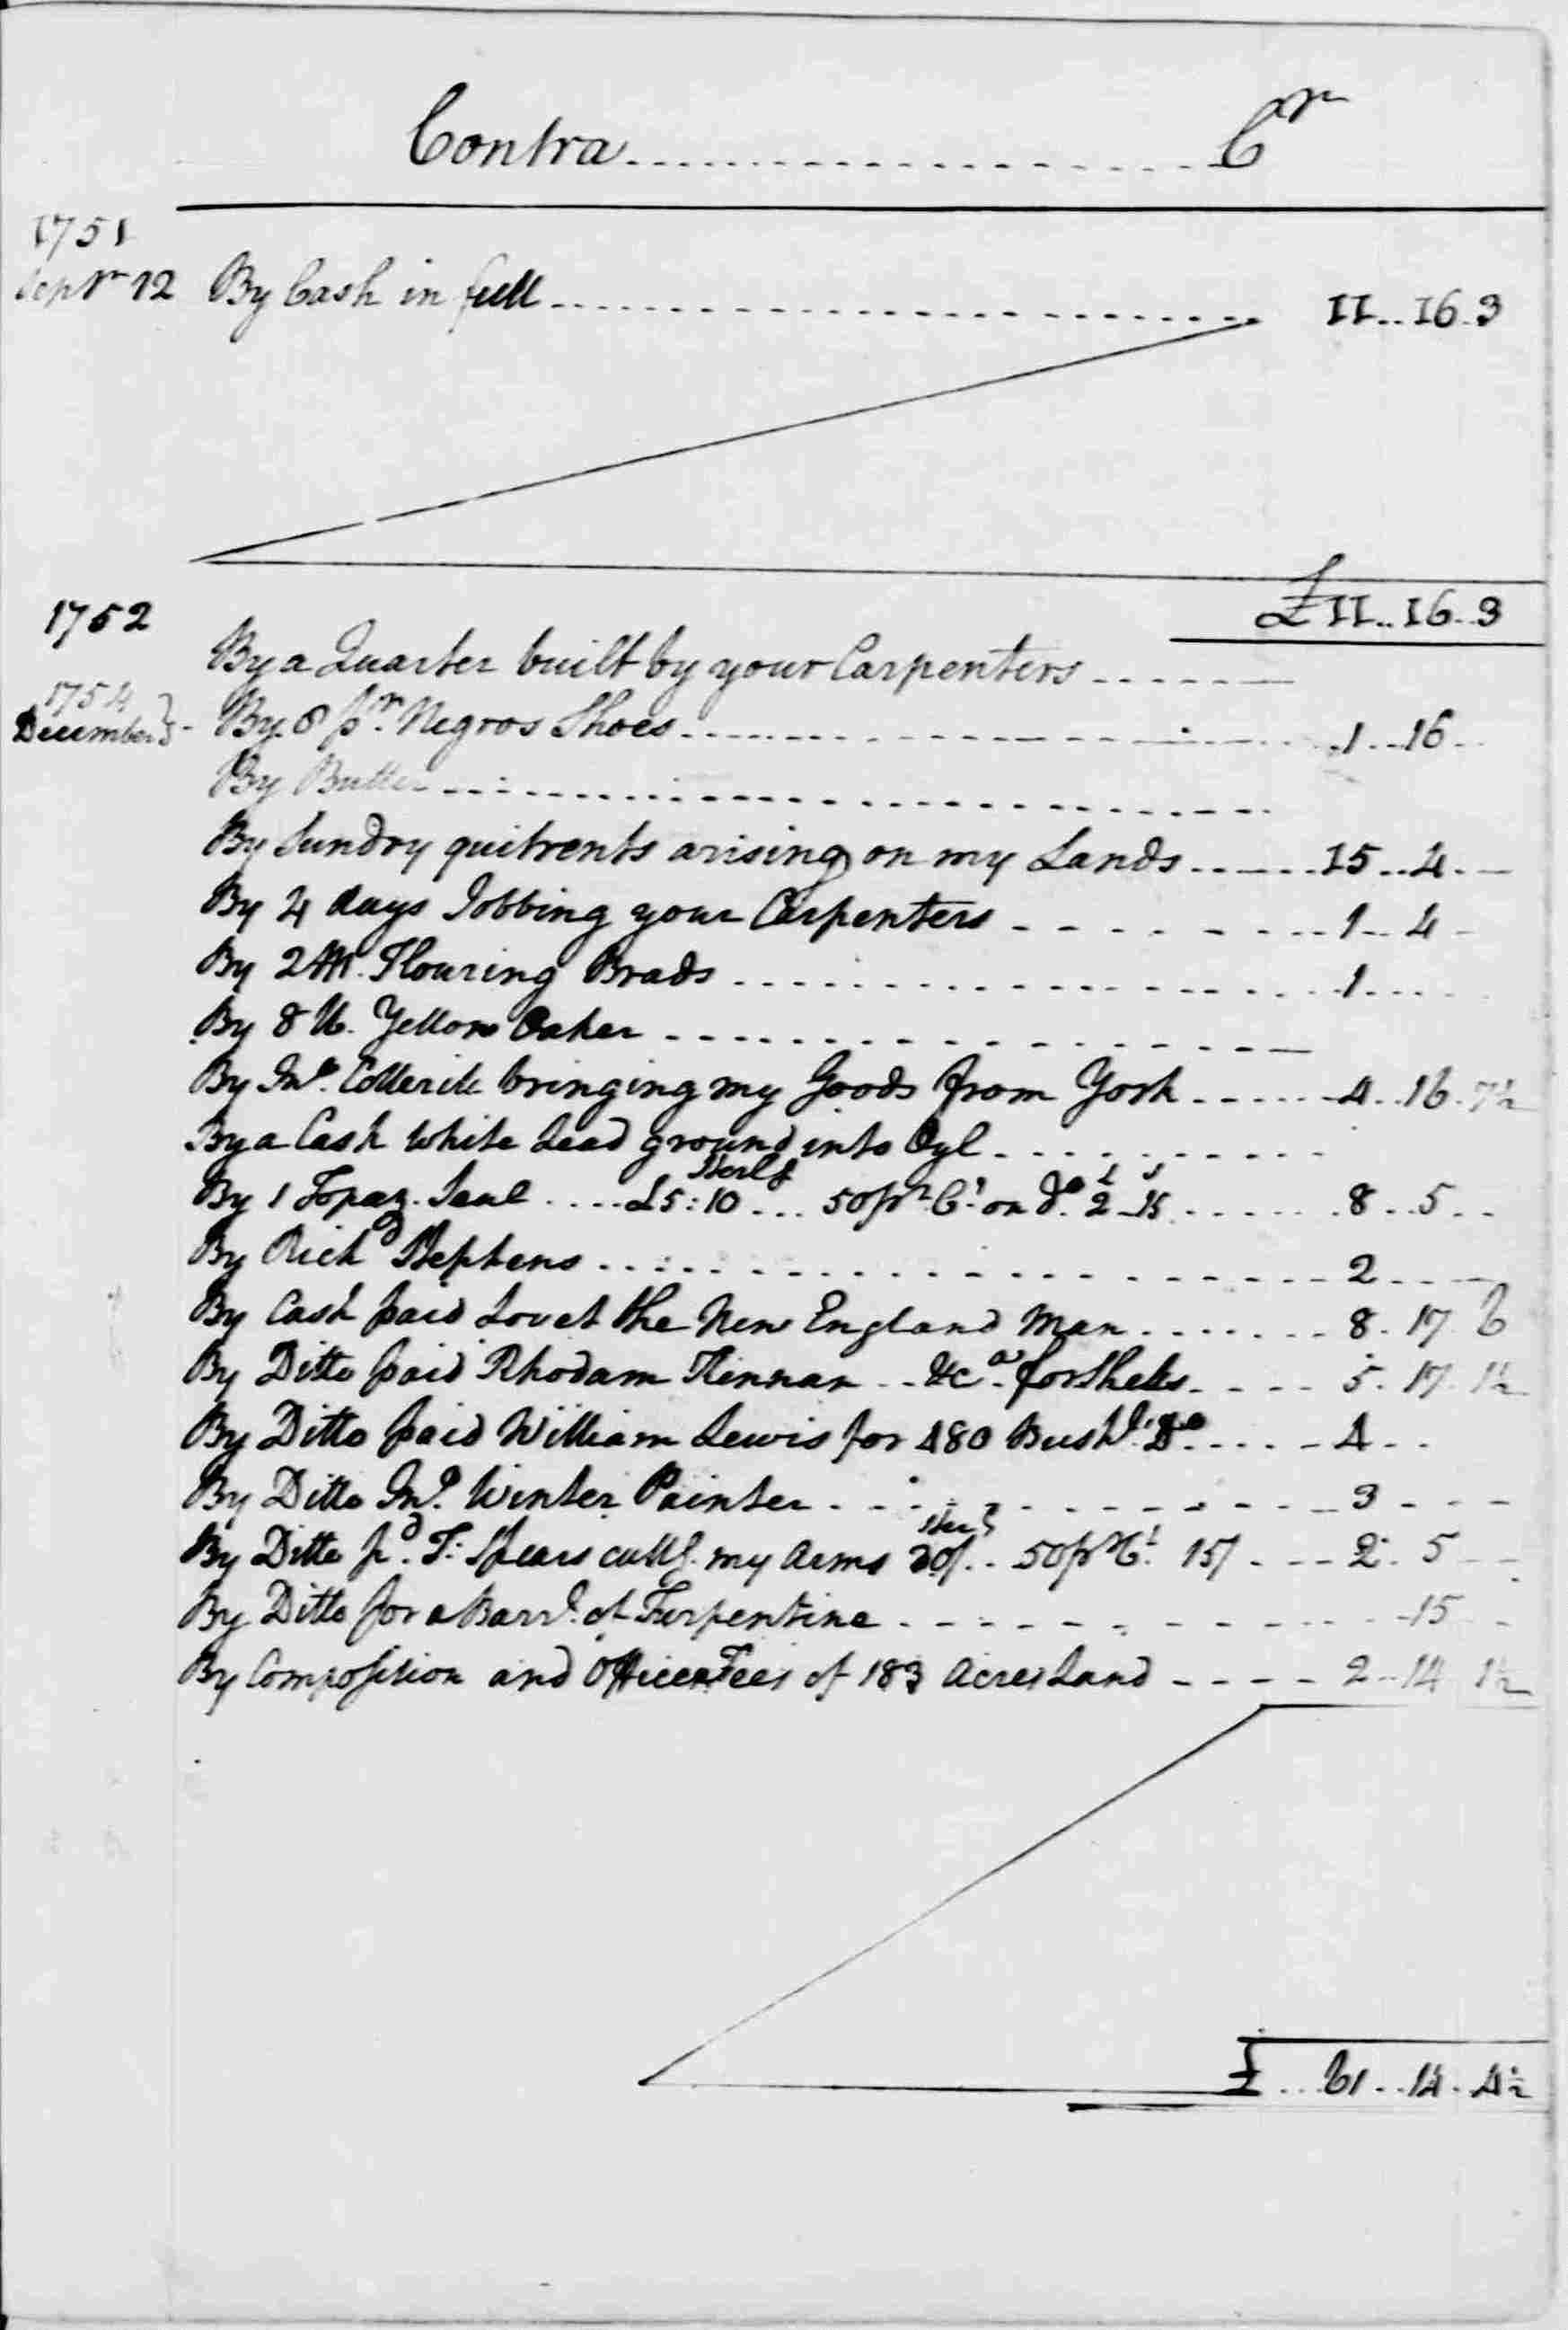 Contra Cr
1751
Septr 12 By Cash in full 11..16.3
£11..16..3
1752
By a Quarter built by your Carpenters
1754
December By 8 pr. Negros Shoes 1..16
By Butter
By Sundry quitrents arising on my Lands 15..4
By 4 days Jobbing your Carpenters 1..4
By 2 M. Flouring Brads 1
By 8 lb. Yellow Oaker
By Jno. bringing my Goods from York 4..16.7½
By a Cask White Lead ground into Oyl
Sterlg
By 1 Topaz Seal £5:10 50 pr. Ct. on Do. 2 15 8..5
By Richd Stephens 2
By Cash paid Lovet the New England Man 8.17.6
By Ditto paid Rhodam &ca. for Shels 5.17.1½
By Ditto paid William Lewis for 480 Bushl. Do 4
By Ditto Jno. Winter Painter 3
Sterg
By Ditto pd. T: Spears cuttg. my Arms 30/. 50 pr Ct. 15/ 2.5
By Ditto for a Barrl. of Turpentine 15
By Composition and Office Fees of 183 Acres Land 2..14 1½
£ 61..14.4½